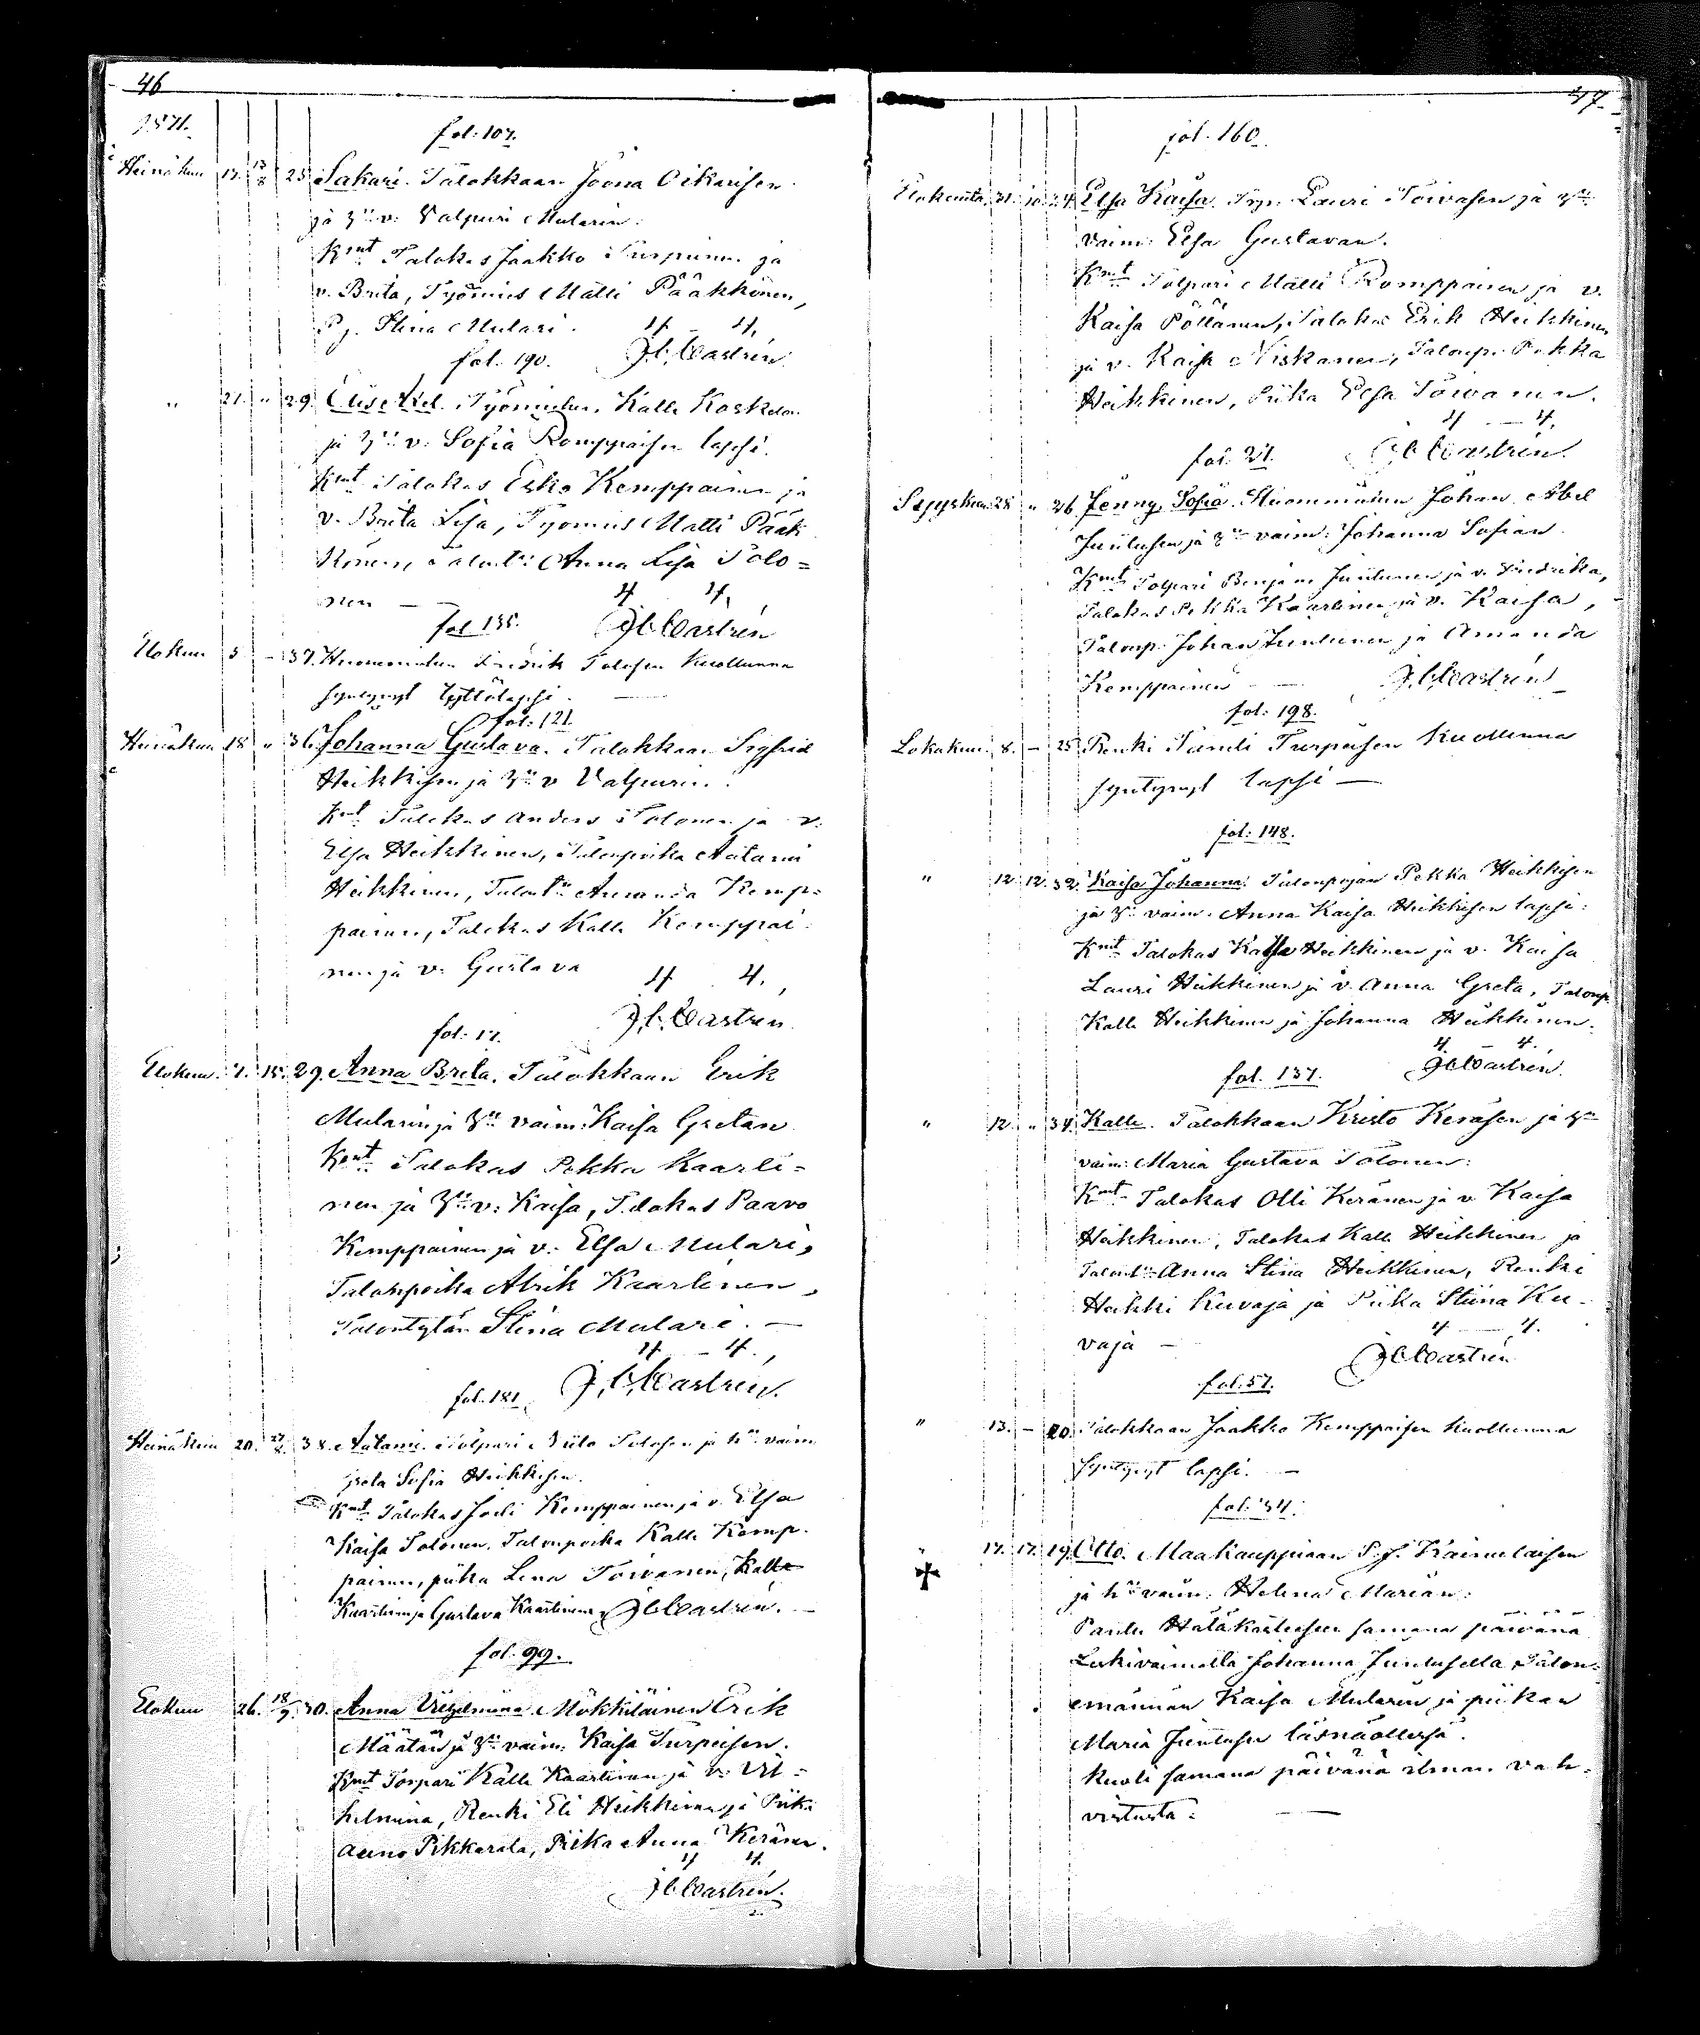 46
1871.
fol: 107.
Heinäkuu 17. 13/8 25 Sakari. Talokkaan Joona Oikarisen
ja v: Valpuri Mularin.
Kmt Talokas Jaakko Turpeinen ja
v. Brita, Työmies Matti Pääkkönen,
Stina Mulari. 4 - 4.
fol. 190. J.C. Castrén
" 21. " 29. Työmiehen Kalle Koskelon
ja v: Sofia Romppaisen lapsi.
Kmt Talokas Esko Kemppainen ja
v. Brita Lisa, Työmies Matti Pääk
könen, Anna Lisa Tolo=
nen — 4 4.
fol 135. J.C. Castrén
Elokuu 5 - 37. Fredrik Tolosen kuollunna
syntynyt tyttölapsi. —
fol: 121.
Heinäkuu 18 " 36. Johanna Gustava. Talokkaan Sigfrid
Heikkisen ja v Valpurin.
Kmt Talokas Anders Tolonen ja v:
Elsa Heikkinen, Talonpoika Aatami
Heikkinen, Amanda Kemp=
painen, Talokas Kalle Kemppai=
nen ja v: Gustava 4 4.
fol: 17. J.C. Castrén
Elokuu. 7. 15. 29. Anna Brita. Talokkaan Erik
Mularin ja vaim: Kaisa Gretan
Kmt Talokas Pekka Kaarli=
nen ja v: Kaisa, Talokas Paavo
Kemppainen ja v: Elsa Mulari,
Talonpoika Abrik Kaarlinen,
Stina Mulari. —
4 - 4.
fol. 181. J.C. Castrén.
Heinäkuu 20. 27/8. 38. Aatami. Tolpari Tolosen ja vaim
Greta Sofia Heikkisen.
Kmt Talokas Kemppainen ja v. Elsa
Kaisa Tolonen, Talonpoika Kalle Kemp-
painen, piika Lena Toivanen, Kalle
Kaarlinen ja Gustava Kaarlinen J.C. Castrén. —
fol. 99.
Elokuu 26. 18/9. 30. Anna Vilhelmina. Mökkiläinen Erik
Määtän ja vaim: Kaisa Turpeisen.
Kmt Torpari Kalle Kaarlinen ja v: Vil=
helmina, Renki Eli Heikkinen ja Piika
Pikkarala, Piika Anna Keränen.
4 4.
J.C. Castrén.
47
fol. 160.
Elokuuta. 31. 10. 24. Elsa Kaisa. Lauri Toivasen ja
vaim: Elsa Gustavan.
Kmt Tolpari Matti Romppainen ja v.
Kaisa Pöllänen, Talokas Erik Heikkinen
ja v. Kaisa Niskanen, Talonp. Pekka
Heikkinen, Piika Elsa Toivanen.
4 — 4.
fol. 27. J.C. Castrén.
Syyskuu 28 " 26 Jenny Sofia. Johan Abel
Juntusen ja vaim: Johanna Sofian.
Kmt Tolpari Benjam Juntunen ja v. Fredrika,
Talokas Pekka Kaarlinen ja v. Kaisa,
Talonp. Johan Juntunen ja Amanda
Kemppainen — J.C. Castrén
fol: 198.
Lokakuu. 8. - 25 Renki Turpeisen kuollunna
syntynyt lapsi —
fol: 148.
" 12 12. 32. Kaisa Johanna. Talonpojan Pekka Heikkisen
ja vaim. Anna Kaisa Heikkisen lapsi:
Kmt Talokas Kalle Heikkinen ja v. Kaisa
Lauri Heikkinen ja v. Anna Greta, Talonp.
Kalle Heikkinen ja Johanna Heikkinen.
4 — 4.
fol. 137. J.C. Castrén.
" 12 " 34. Kalle. Talokkaan Kristo Keräsen ja
vaim: Maria Gustava Tolonen:
Kmt Talokas Olli Keränen ja v. Kaisa
Heikkinen, Talokas Kalle Heikkinen ja
Anna Stina Heikkinen, Renki
Heikki Kuvaja ja Piika Stiina Ku-
vaja — 4 — 4.
J.C. Castrén
fol: 57.
" 13. - 20. Talokkaan Jaakko Kemppaisen kuollunna
syntynyt lapsi. —
fol: 34.
" 17. 17. 19. Otto. Maakauppiaan Kainulaisen
ja vaim: Helena Marian:
Hätäkasteesen samana päivänä
Leskivaimolta Johanna Juntuselta Talon=
emännän Kaisa Mularin ja piikan
Maria Juntusen läsnäollessa.
Kuoli samana päivänä ilman vah-
vistusta: —